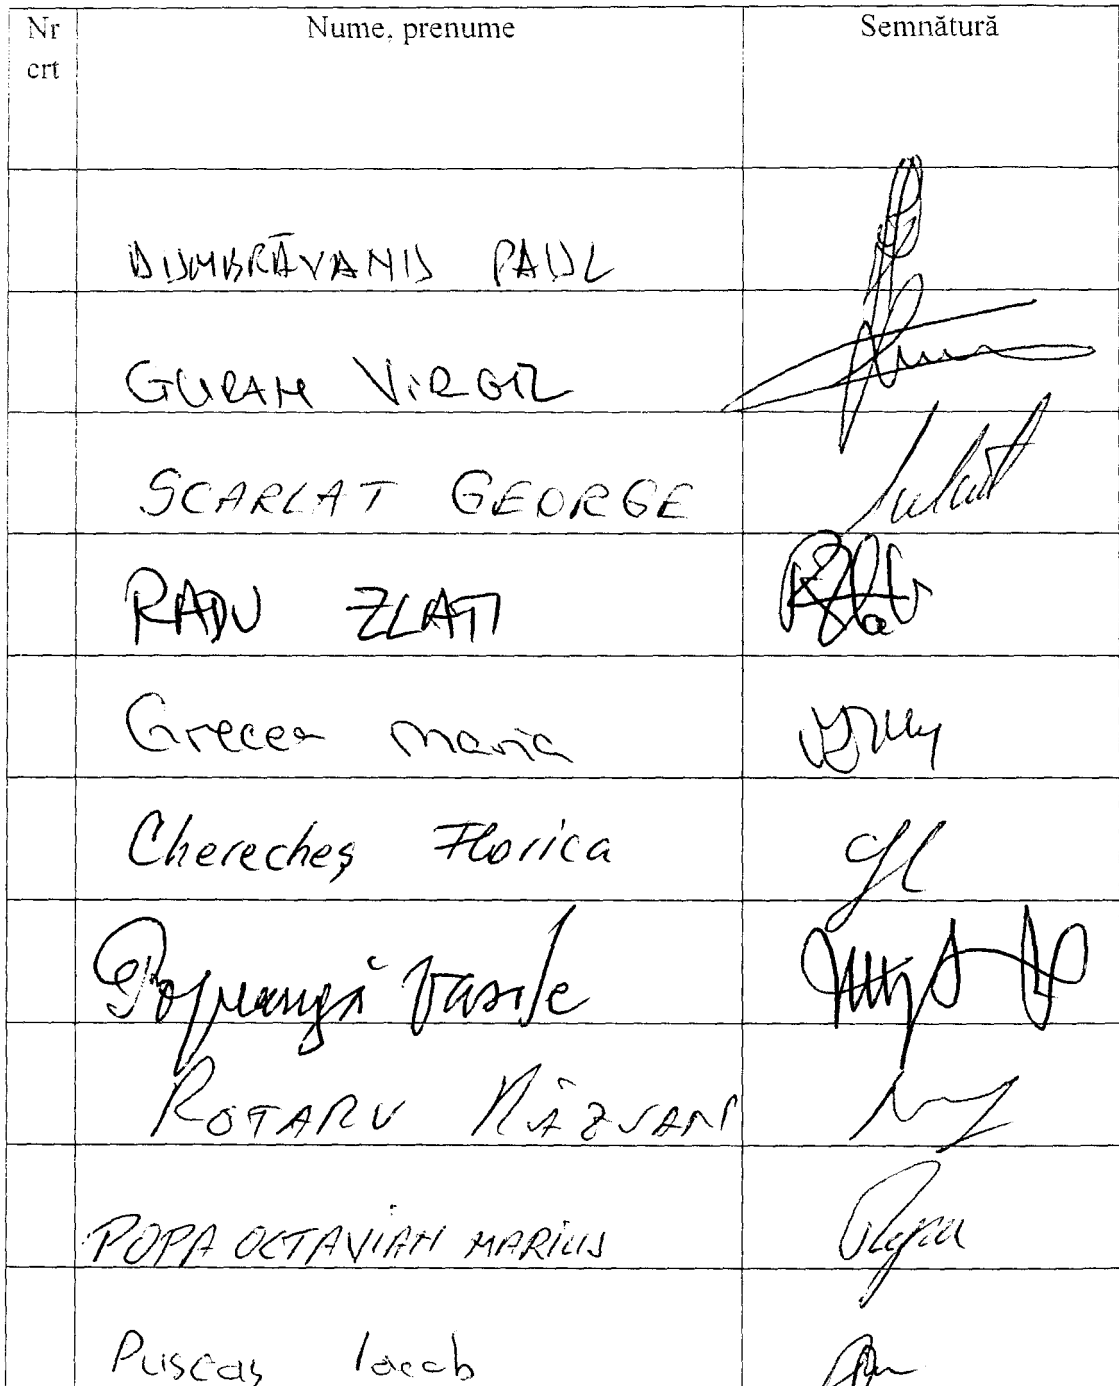 Nr crt Nume, prenume Semnătură
DUMBRĂVANU PAUL
GURAN VIRGIL
SCARLAT GEORGE
RADU ZLATI
Grecea Maria
Cherecheș Florica
Popeangă Vasile
ROTARU RĂZVAN
POPA OCTAVIAN MARIUS
Puscas Iacob